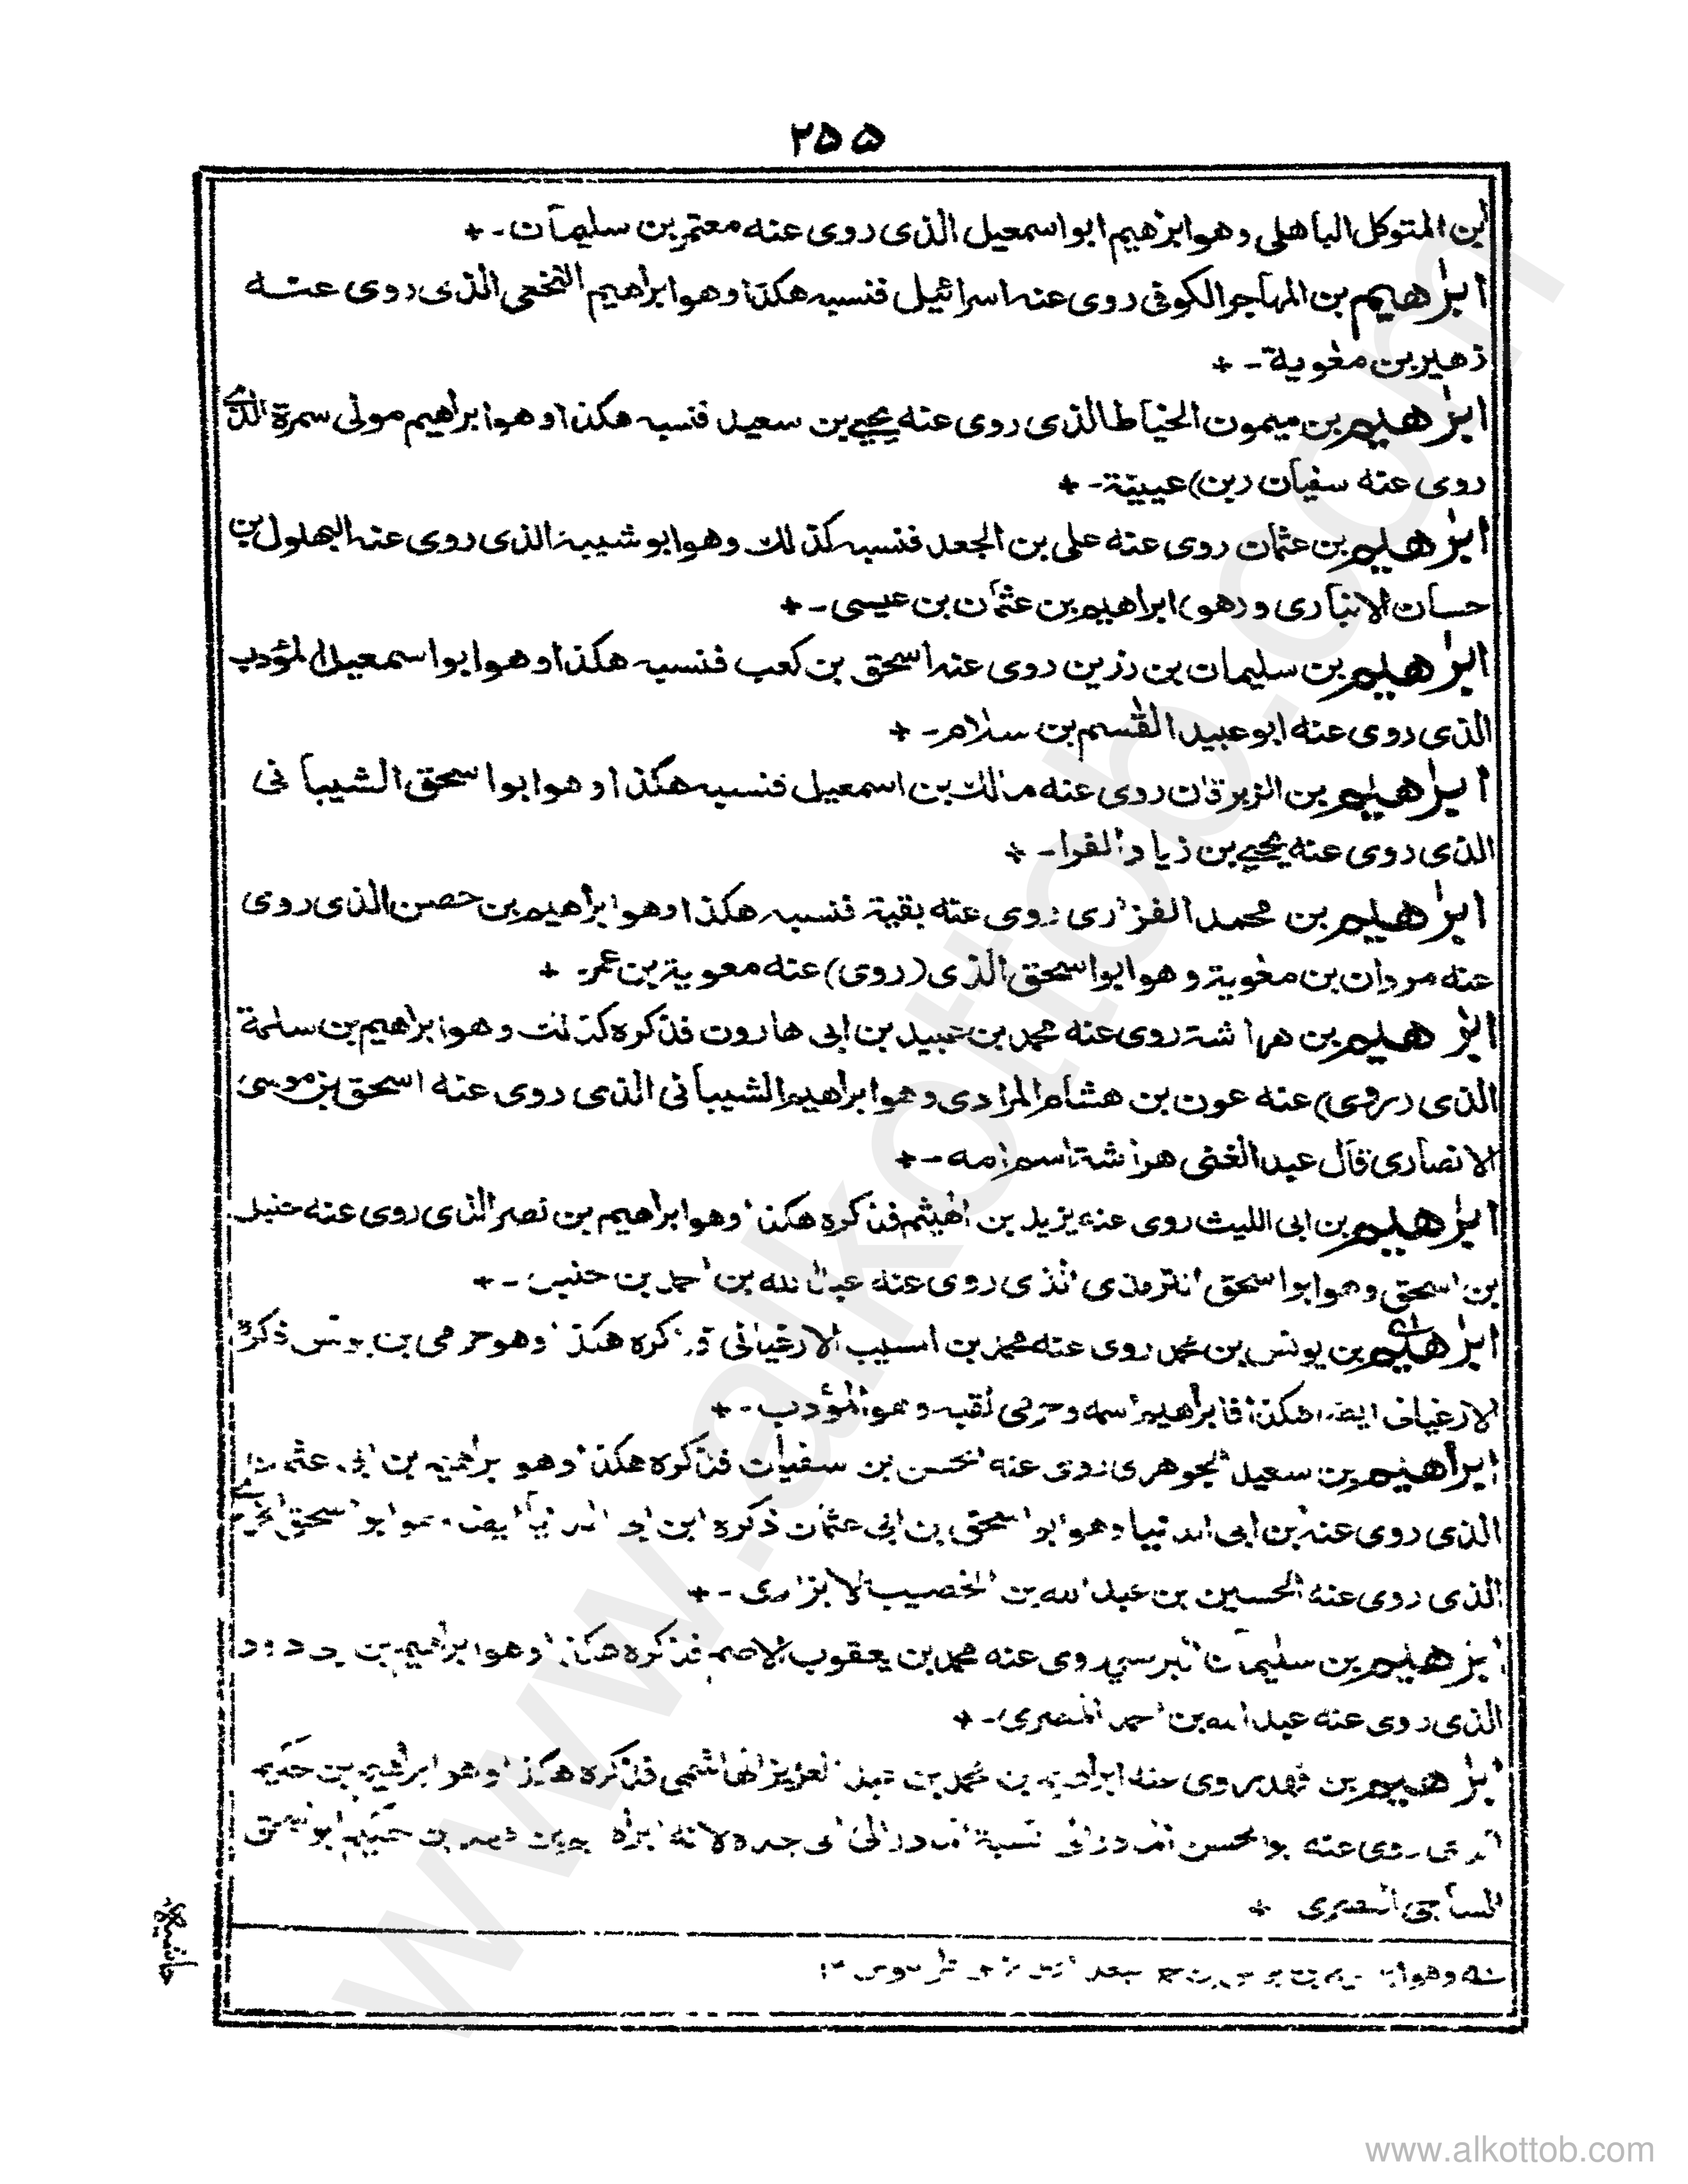 ٢٥٥
ابن المتوكل الباهلي وهوابرٰهيم ابواسمعيل الذى روى عنه معتمر بن سليمان - +
ابرٰهيم بن المهاجر الكوفى روى عنه اسرائيل فنسبه هكذا وهوابراهيم النخعى الذى روى عنه
زهير بن معٰوية - +
ابرٰهيم بن ميمون الخياط الذى روى عنه يحيى بن سعيد فنسبه هكذا وهوابراهيم مولى سمرة الذى
روى عنه سفيان (بن) عيينة - +
ابرٰهيم بن عثمان روى عنه على بن الجعد فنسبه كذلك وهوابوشيبة الذى روى عنه البهلول بن
حسان الانبارى و(هو) ابراهيم بن عثمان بن عيسى - +
ابرٰهيم بن سليمان بن رزين روى عنه اسحق بن كعب فنسبه هكذا وهوابواسمعيل المؤدب
الذى روى عنه ابوعبيد القٰسم بن سلام - +
ابرٰهيم بن الزبرقان روى عنه مالك بن اسمعيل فنسبه هكذا وهوابواسحق الشيبانى
الذى روى عنه يحيى بن زياد الفرا - +
ابرٰهيم بن محمد الفزارى روى عنه بقية فنسبه هكذا وهوابراهيم بن حصن الذى روى
عنه مروان بن معٰوية وهوابواسحق الذى (روى) عنه معوية بن عمر +
ابرٰهيم بن هراشة روى عنه محمد بن عبيد بن ابى هارون فذكره كذلك وهوابراهيم بن سلمة
الذى (روى) عنه عون بن هشام المرادى وهوابراهيم الشيبانى الذى روى عنه اسحق بن موسى
الانصارى قال عبد الغنى هراشة اسم امه - +
ابرٰهيم بن ابى الليث روى عنه يزيد بن الهيثم فذكره هكذا وهوابراهيم بن نصر الذى روى عنه حنبل
بن اسحق وهوابواسحق الترمذى الذى روى عنه عبد الله بن احمد بن حنبل - +
ابرٰهيم بن يونس بن محمد روى عنه محمد بن المسيب الارغيانى فذكره هكذا وهوحرمى بن يونس ذكره
الارغيانى ايضا هكذا فابراهيم اسمه وحرمى لقبه وهوالمؤدب - +
ابراهيم بن سعيد الجوهرى روى عنه الحسن بن سفيان فذكره هكذا وهو ابراهيم بن ابى عثمان
الذى روى عنه ابن ابى الدنيا وهوابواسحق بن ابى عثمان ذكره ابن ابى الدنيا ايضا وهوابواسحق
الذى روى عنه الحسين بن عبد الله بن الخصيب الابزارى - +
ابرٰهيم بن سليمان البرسى روى عنه محمد بن يعقوب الاصم فذكره هكذا وهوابراهيم بن ابى داود
الذى روى عنه عبد الله بن احمد المصرى - +
ابرٰهيم بن فهد روى عنه ابراهيم بن محمد بن عبد العزيز الهاشمى فذكره هكذا وهو ابراهيم بن حكيم
الذى روى عنه ابوالحسن نسبة الى جده لانه ابراهيم بن فهد بن حكيم ابواسحق
الساجى البصرى +
حاشيه
www.alkottob.com